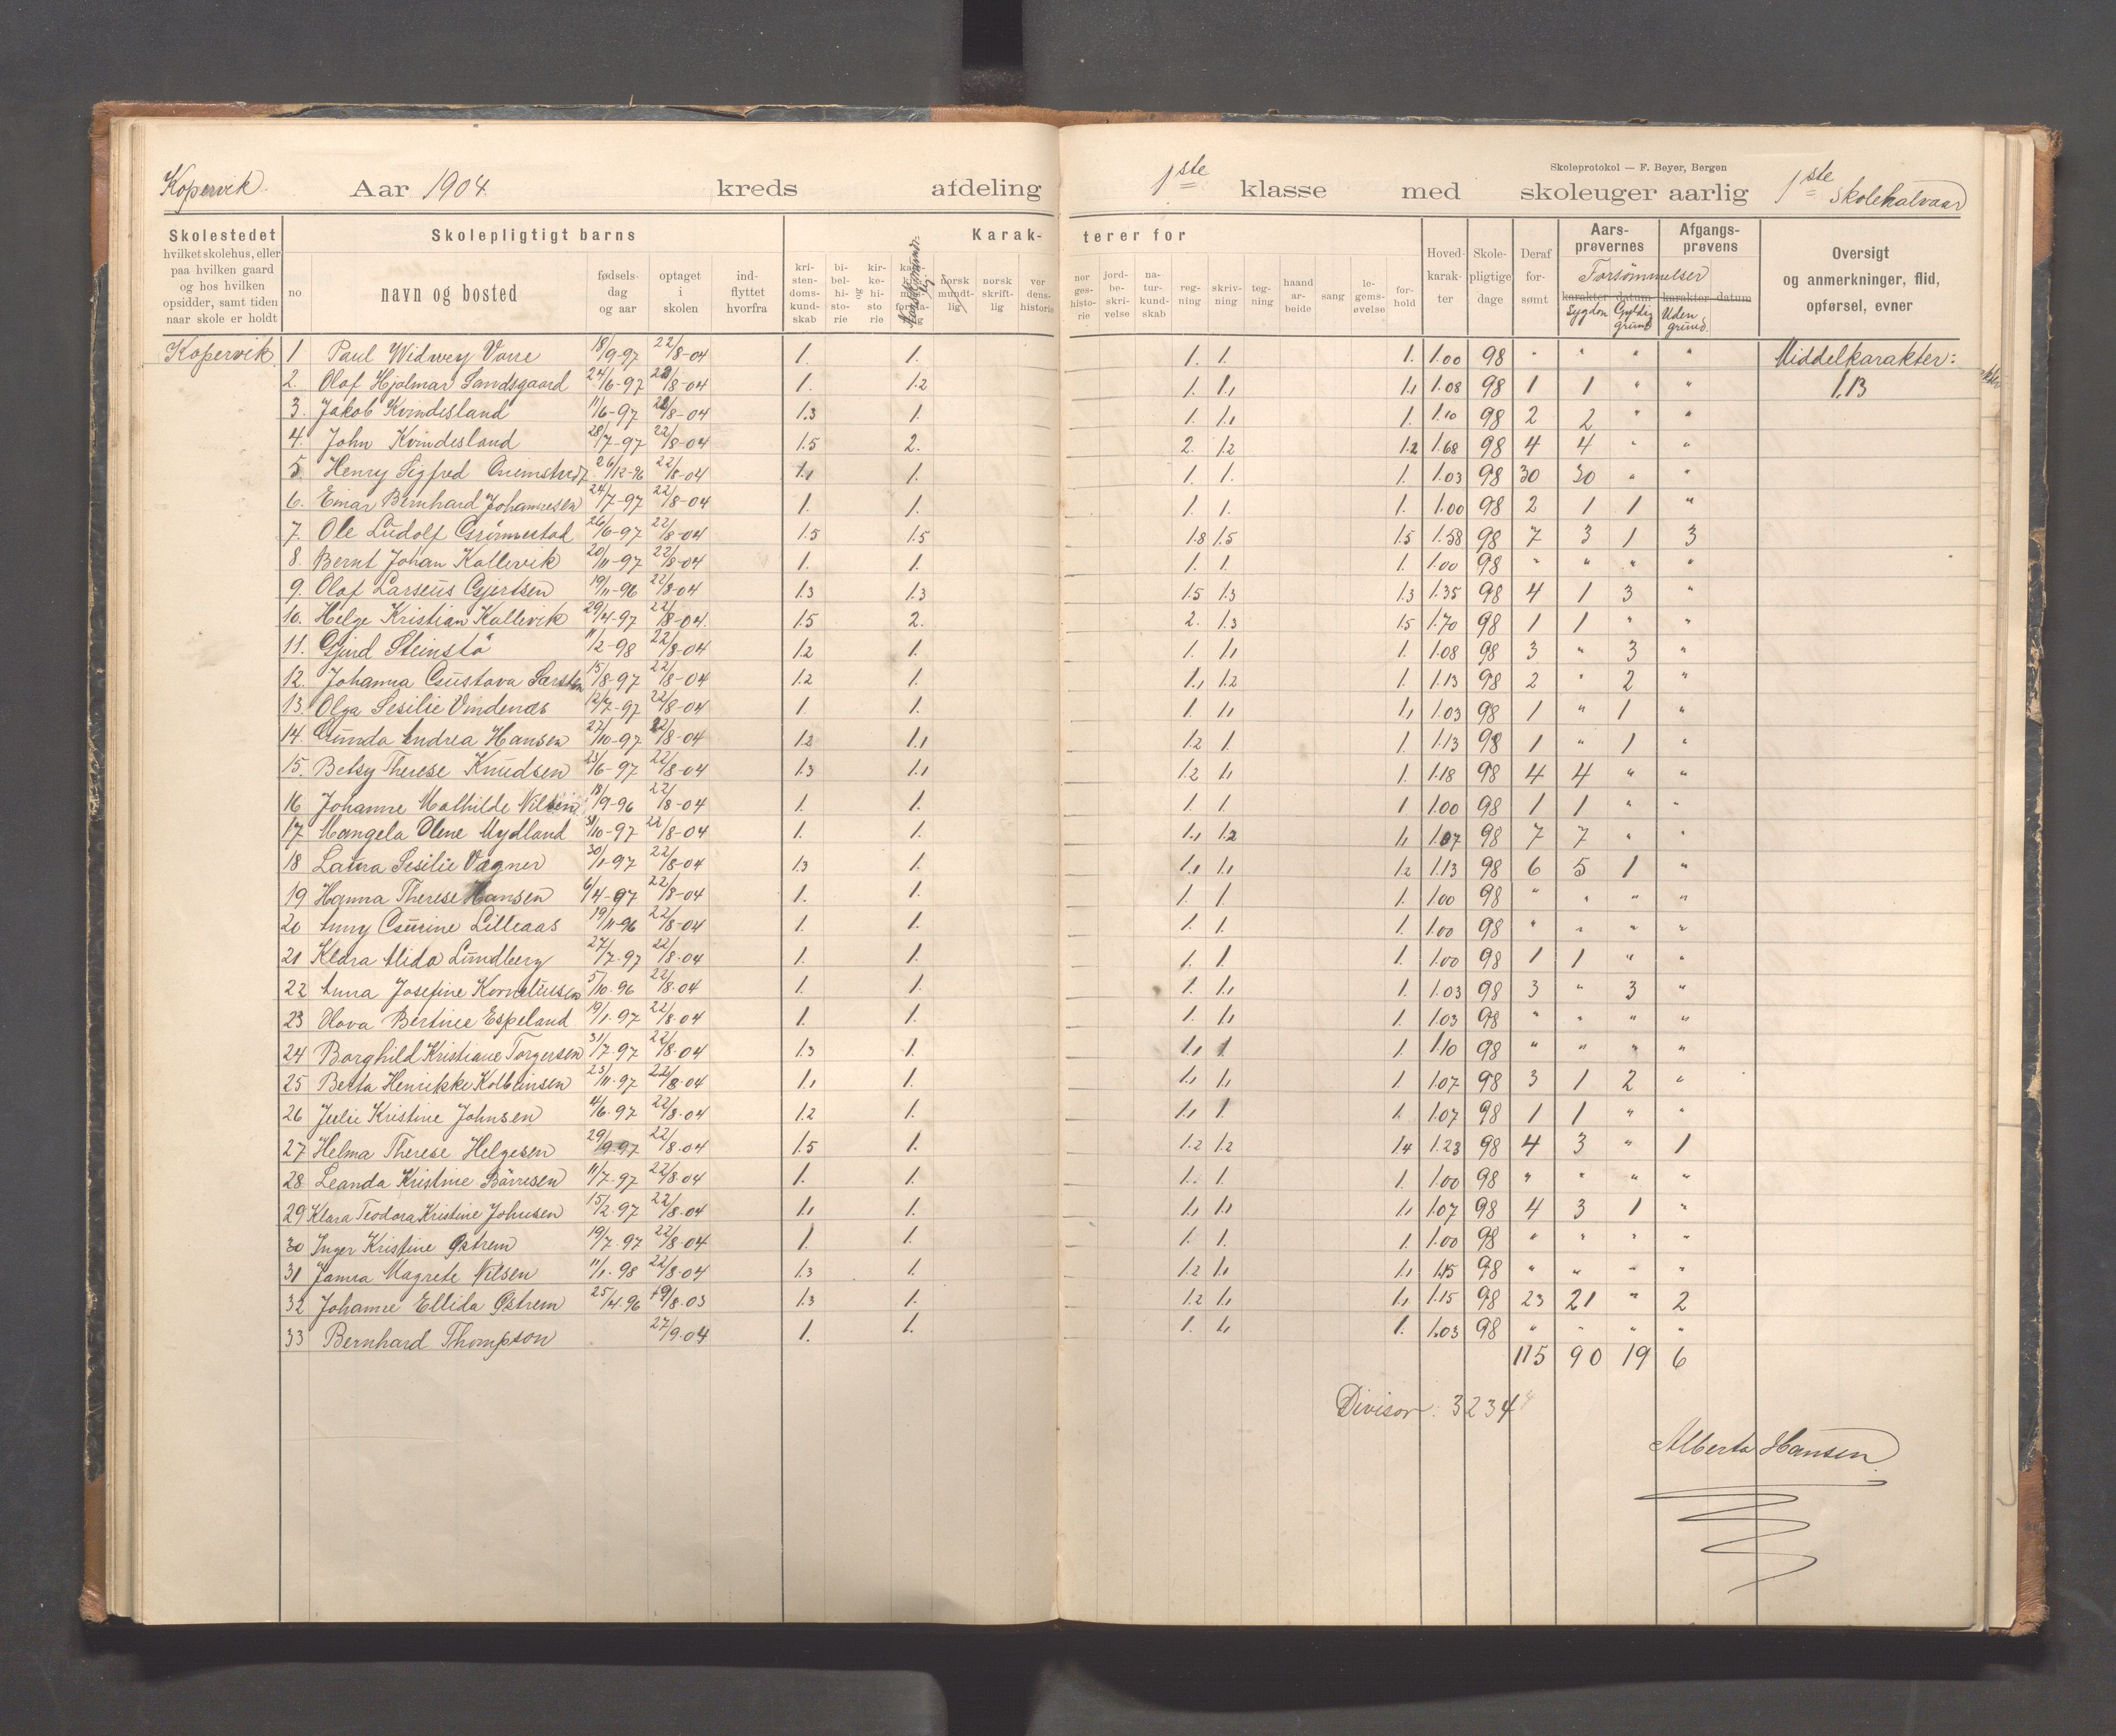 Skoleprotokol — F. Beyer, Bergen
Kopervik. Aar 1904 kreds afdeling 1ste klasse med skoleuger aarlig 1ste Skolehalvaar
Skolestedet Skolepligtigt barns Karak- terer for Aars- prøvernes Afgangs- prøvens
hvilket skolehus, eller paa hvilken gaard og hos hvilken opsidder, samt tiden naar skole er holdt
no. navn og bosted fødsels- dag og aar optaget i skolen ind- flyttet hvorfra
kri- sten- doms- kund- skab bi- bel- hi- sto- rie og kir- ke- hi- sto rie norsk mundt- lig norsk skrift- lig ver dens- historie
nor ges- histo- rie jord- be- skri- velse na- tur- kund- skab reg- ning skriv- ning teg- ning haand ar- beide sang le- gems- øvelse for- hold
Hoved- karak- ter Skole- pligtige dage Deraf for- sømt Forsømmelser karakter datum karakter datum Sygdom Gyldig grund Uden grund.
Oversigt og anmerkninger, flid, opførsel, evner
Kopervik 1 Paul Widwey Vorre 18/9-97 22/8-04 1. 1. 1. 1. 1. 1.00 98 " " " " Middelkarakter:
2. Olaf Hjalmar Sandsgaard 24/6-97 22/8-04 1. 1.2 1. 1.1 1.1 1.08 98 1 1 " " 1,13
3. Jakob Kvindesland 11/6-97 22/8-04 1.3 1. 1. 1.1 1. 1.10 98 2 2 " "
4. John Kvindesland 28/7-97 22/8-04 1.5 2. 2. 1.2 1.2 1.68 98 4 4 " "
5. Henry Sigfred 26/12-96 22/8-04 1.1 1. 1. 1. 1. 1.03 98 30 30 " "
6. Einar Bernhard Johannesen 24/7-97 22/8-04 1. 1. 1. 1. 1. 1.00 98 2 1 1 "
7. Ole Ludolf Grönnestad 26/6-97 22/8-04 1.5 1.5 1.8 1.5 1.5 1.58 98 7 3 1 3
8. Bernt Johan Kallevik 20/11-97 22/8-04 1. 1. 1. 1. 1. 1.00 98 " " " "
9. Olaf Larseus Gjertsen 19/11-96 22/8-04 1.3 1.3 1.5 1.3 1.3 1.35 98 4 1 3 "
10. Helge Kristian Kallevik 29/4-97 22/8-04. 1.5 2. 2. 1.3 1.5 1.70 98 1 1 " "
11. Gjurd Steinstö 11/2-98 22/8-04 1.2 1. 1. 1.1 1. 1.08 98 3 " 3 "
12. Johanna Gustava 15/8-97 22/8-04 1.2 1. 1.1 1.2 1. 1.13 98 2 " 2 "
13. Olga Sesilie Vindenæs 12/7-97 22/8-04 1. 1. 1. 1.1 1.1 1.03 98 1 " 1 "
14. Gunda Andrea Hansen 27/10-97 22/8-04 1.2 1.1 1.2 1. 1. 1.13 98 1 " 1 "
15. Betsy Therese Knudsen 23/6-97 22/8-04 1.3 1.1 1.2 1.1 1. 1.18 98 4 4 " "
16 Johanne Mathilde Nilsen 18/9-96 22/8-04 1. 1. 1. 1. 1 1.00 98 1 1 " "
17. Mangela Olene Mydland 31/10-97 22/8-04 1. 1. 1.1 1.2 1.1 1.07 98 7 7 " "
18 Laura Sesilie Vagner 30/1-97 22/8-04 1.3 1. 1.1 1.1 1.2 1.13 98 6 5 1 "
19 Hanna Therese Hansen 6/4-97 22/8-04 1. 1. 1. 1. 1. 1.00 98 " " " "
20 Anny Gurine Lilleaas 19/11-96 22/8-04 1. 1. 1. 1. 1. 1.00 98 " " " "
21 Klara Alida Lundberg 27/7-97 22/8-04 1. 1. 1. 1 1. 1.00 98 1 1 " "
22 Anna Josefine Korneliusen 5/10.96 22/8.04 1. 1. 1. 1.1 1. 1.03 98 3 " 3 "
23 Olava Bertine Espeland 19/1.97 22/8.04 1. 1. 1. 1.1 1. 1.03 98 " " " "
24 Borghild Kristiane Torgersen 31/7.97 22/8.04 1.3 1. 1.1 1. 1. 1.10 98 " " " "
25 Berta Henrikke Kolbeinsen 23/11.97 22/8.04 1.1 1. 1.1 1.1 1. 1.07 98 3 1 2 "
26 Julie Kristine Johnsen 4/6.97 22/8.04 1.2 1. 1.1 1. 1. 1.07 98 1 1 " "
27 Helma Therese Helgesen 29/9.97 22/8.04 1.5 1. 1.2 1.2 1.4 1.23 98 4 3 " 1
28 Leanda Kristine Börresen 11/7.97 22/8.04 1. 1. 1. 1. 1. 1.00 98 " " " "
29 Klara Teodora Kristine Johnsen 15/2.97 22/8.04 1.1 1. 1.1 1.1 1.1 1.07 98 4 3 1 "
30 Inger Kristine Østrem 19/7.97 22/8.04 1. 1. 1. 1. 1. 1.00 98 " " " "
31 Janna Magrete Nilsen 11/1.98 22/8.04 1.3 1. 1.2 1.1 1.1 1.15 98 " " " "
32 Johanne Ellida Østrem 25/4.96 19/8.03 1.3 1. 1.2 1.1 1.1 1.15 98 23 21 " 2
33 Bernhard Thompson 27/9.04 1. 1. 1. 1.1 1. 1.03 98 " " " "
115 90 19 6
Divisor: 3234
Alberta Hansen